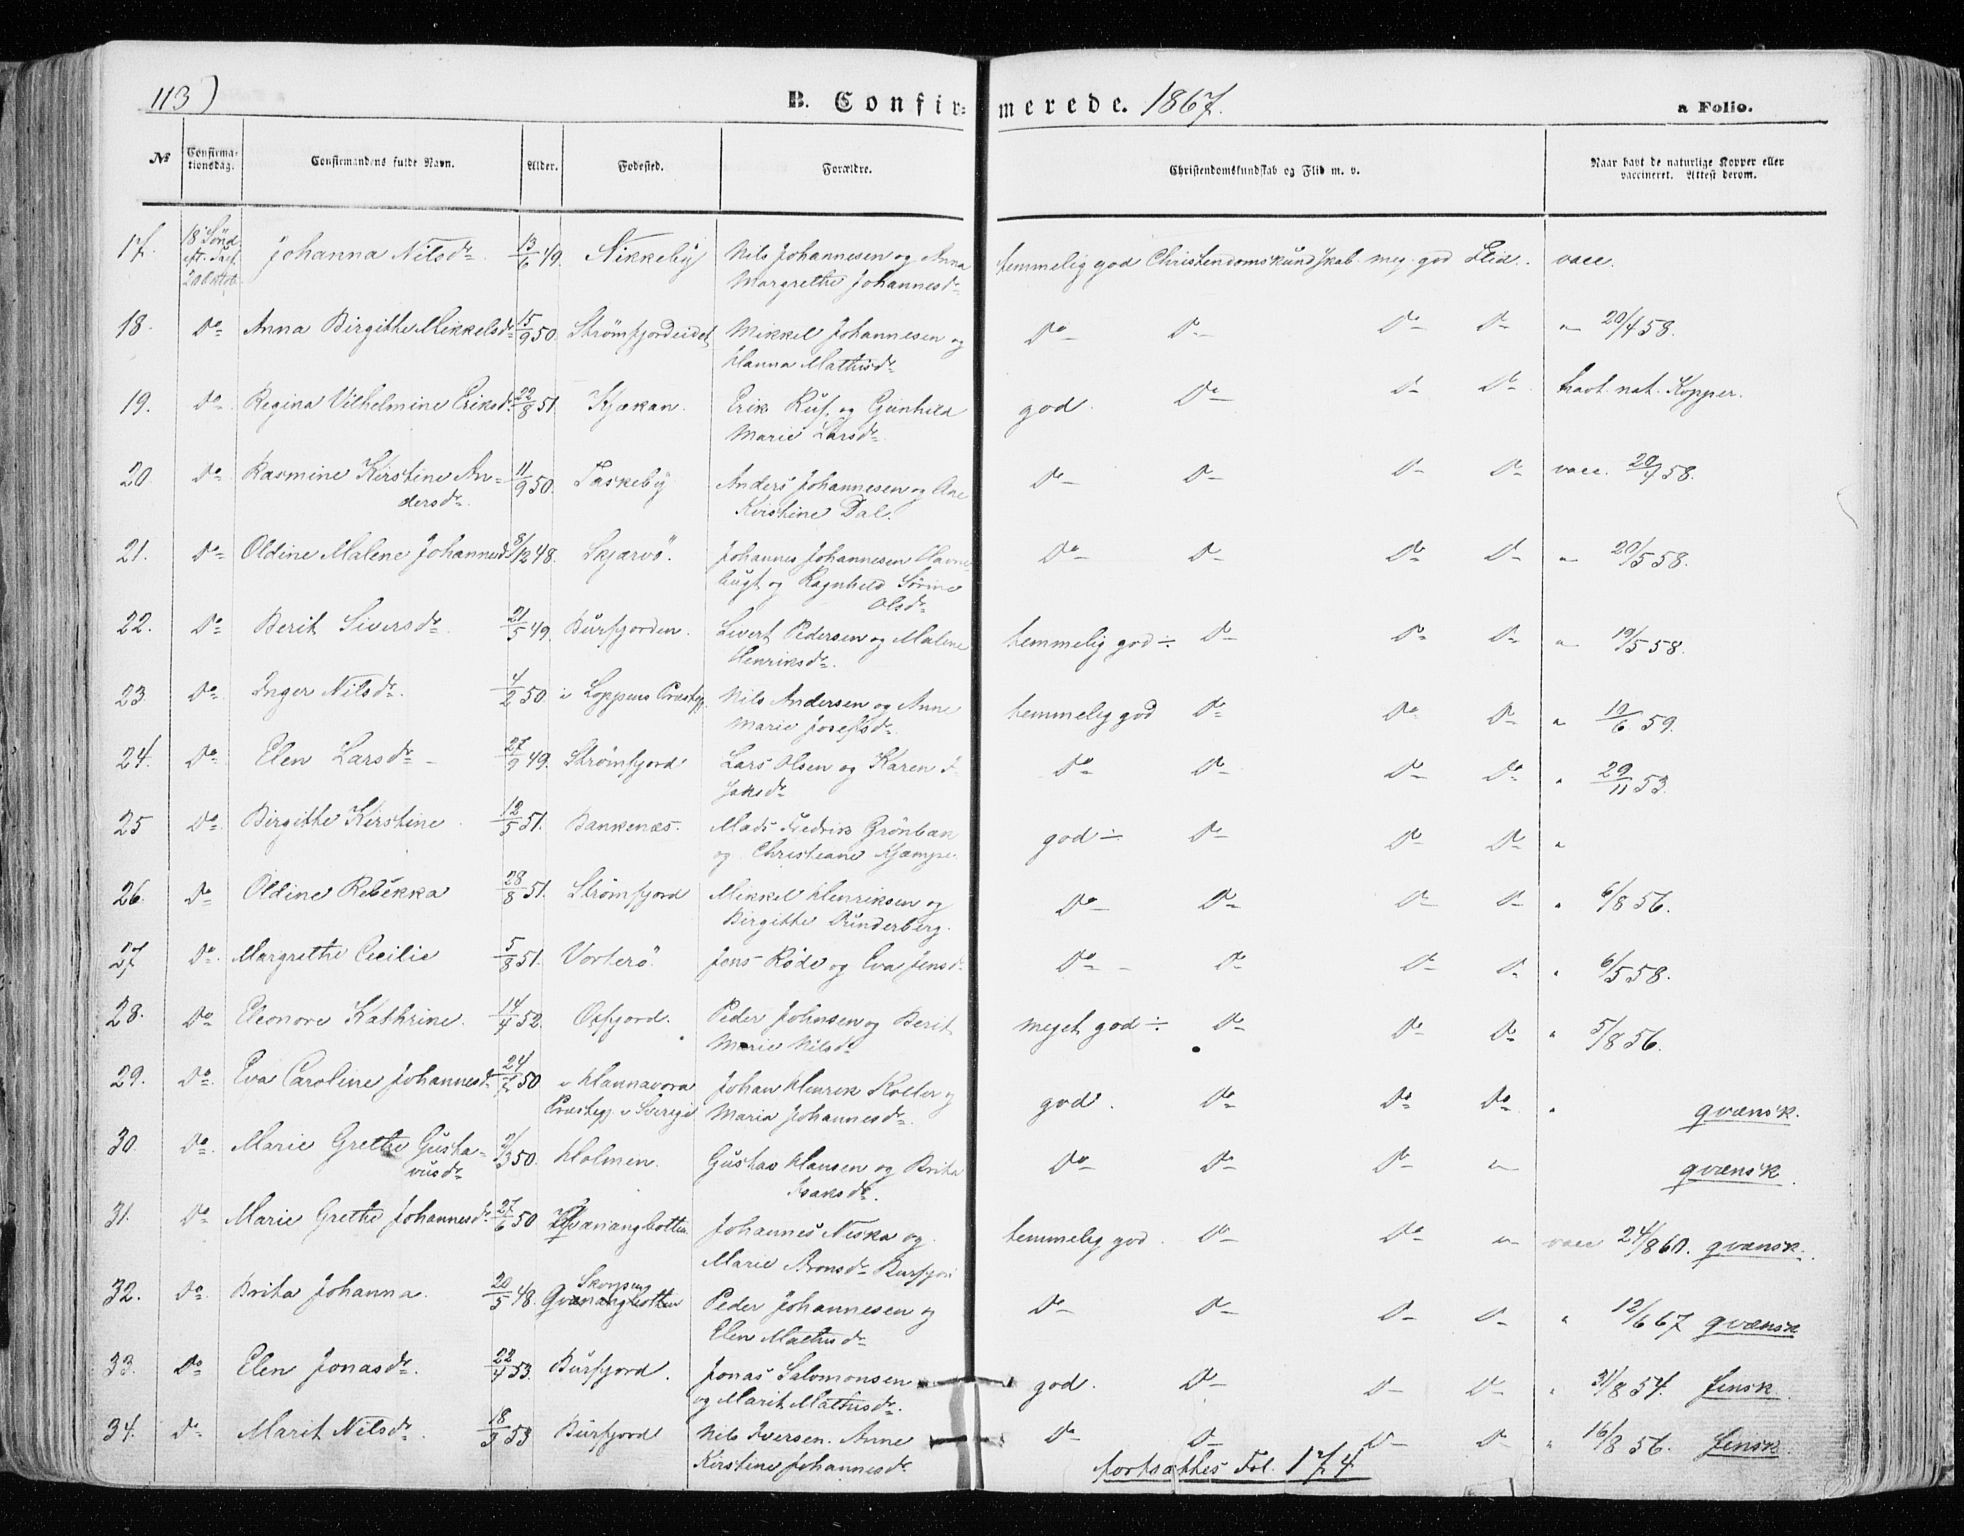 113)
B. Confirmerede. 1867.
a Folio.
No
Confirmationsdag.
Confirmandens fulde Navn.
Alder.
Fødested.
Forældre.
Christendomskundskab og Flid m. v.
Naar havt de naturlige Kopper eller vaccineret. Attest derom.
17. 18 Sønd. Johanna Nilsdr. 13/6 49. Nikkeby Nils Johannesen og Anna temmelig god Christendomskundskab meg. god Flid. vacc.
20 Octob. Margrethe Johannesdr.
18. Do Anna Birgithe Mikkelsdr. 15/9 50. Strømfjordeidet Mikkel Johannesen og Do Do Do Do " 20/4 58.
Hanna Mathisdr.
19. Do Regina Vilhelmine Eriksdr. 22/8 51. Kjækan. Erik Ruf. og Gunhild god. Do Do Do havt nat. Kopper.
Marie Larsdr.
20. Do Rasmine Kirstine An- 11/9 50. Taskeby Anders Johannesen og Ane Do Do Do Do vacc. 20/4 58.
dersdr. Kirstine Dal.
21. Do Oldine Malene Johannesdr. 8/12 48. Skjærvö. Johannes Johannesen Havne- Do Do Do Do " 20/5 58.
bugt og Ragnhild Sörine
Olsdr.
22. Do Berit Siversdr. 21/5 49. Burfjorden. Sivert Pedersen og Malene temmelig god ÷ Do Do Do " 19/5 58.
Henriksdr.
23. Do Inger Nilsdr. 4/2 50. i Loppens Præstegj. Nils Andersen og Anne temmelig god Do Do Do " 19/6 59.
Marie Josefsdr.
24. Do Elen Larsdr. 27/9 49. Strømfjord Lars Olsen og Karen Do Do Do Do " 29/11 53.
25 Do Birgithe Kirstine 12/5 51. Bankenæs. Mads Fredrik Grönban god ÷ Do Do Do "
og Christiane Kjempe.
26. Do Oldine Rebekka 28/8 51. Strømfjord Mikkel Henriksen og Do Do Do Do " 6/8 56.
Birgithe Dunderberg.
27 Do Margrethe Cecilie 5/8 51. Vorterö. Jens Röde og Eva Jensdr. Do Do Do Do " 6/5 58.
28. Do Eleonore Kathrine. 14/4 52. Oxfjord. Peder Johnsen og Berit meget god ÷ Do Do Do " 5/8 56.
Marie Nilsdr.
29. Do Eva Caroline Johannesdr. 24/7 50 i Hannavora Johan Henrik Kolter og god. Do Do Do " qvænsk.
Præstegj. i Sverige Maria Johannesdr.
30. Do Marie Grethe Gusta- 2/3 50. Holmen. Gustav Hansen og Brita Do Do Do " qvænsk.
vusdr. Isaksdr.
31. Do Marie Grethe Johannesdr. 27/6 50 Qvænangbotten Johannes Niska og temmelig god. Do Do " vacc 24/8 60. qvænsk.
Marie Aronsdr. Burfjord
32. Do Brita Johanna. 20/5 48. Skorpen Peder Johannesen og Do Do Do Do " 12/6 67 qvænsk
Qvænangbotten Elen Mathisdr.
33. Do Elen Jonasdr. 22/4 53. Burfjord. Jonas Salomonsen god. Do Do Do " 31/8 57. finsk.
og Marit Mathisdr.
34. Do Marit Nilsdr. 18/3 53 Burfjord Nils Iversen. Anne Do Do Do Do " 16/8 56. finsk.
Kirstine Johannesdr.
fortsættes Fol. 174